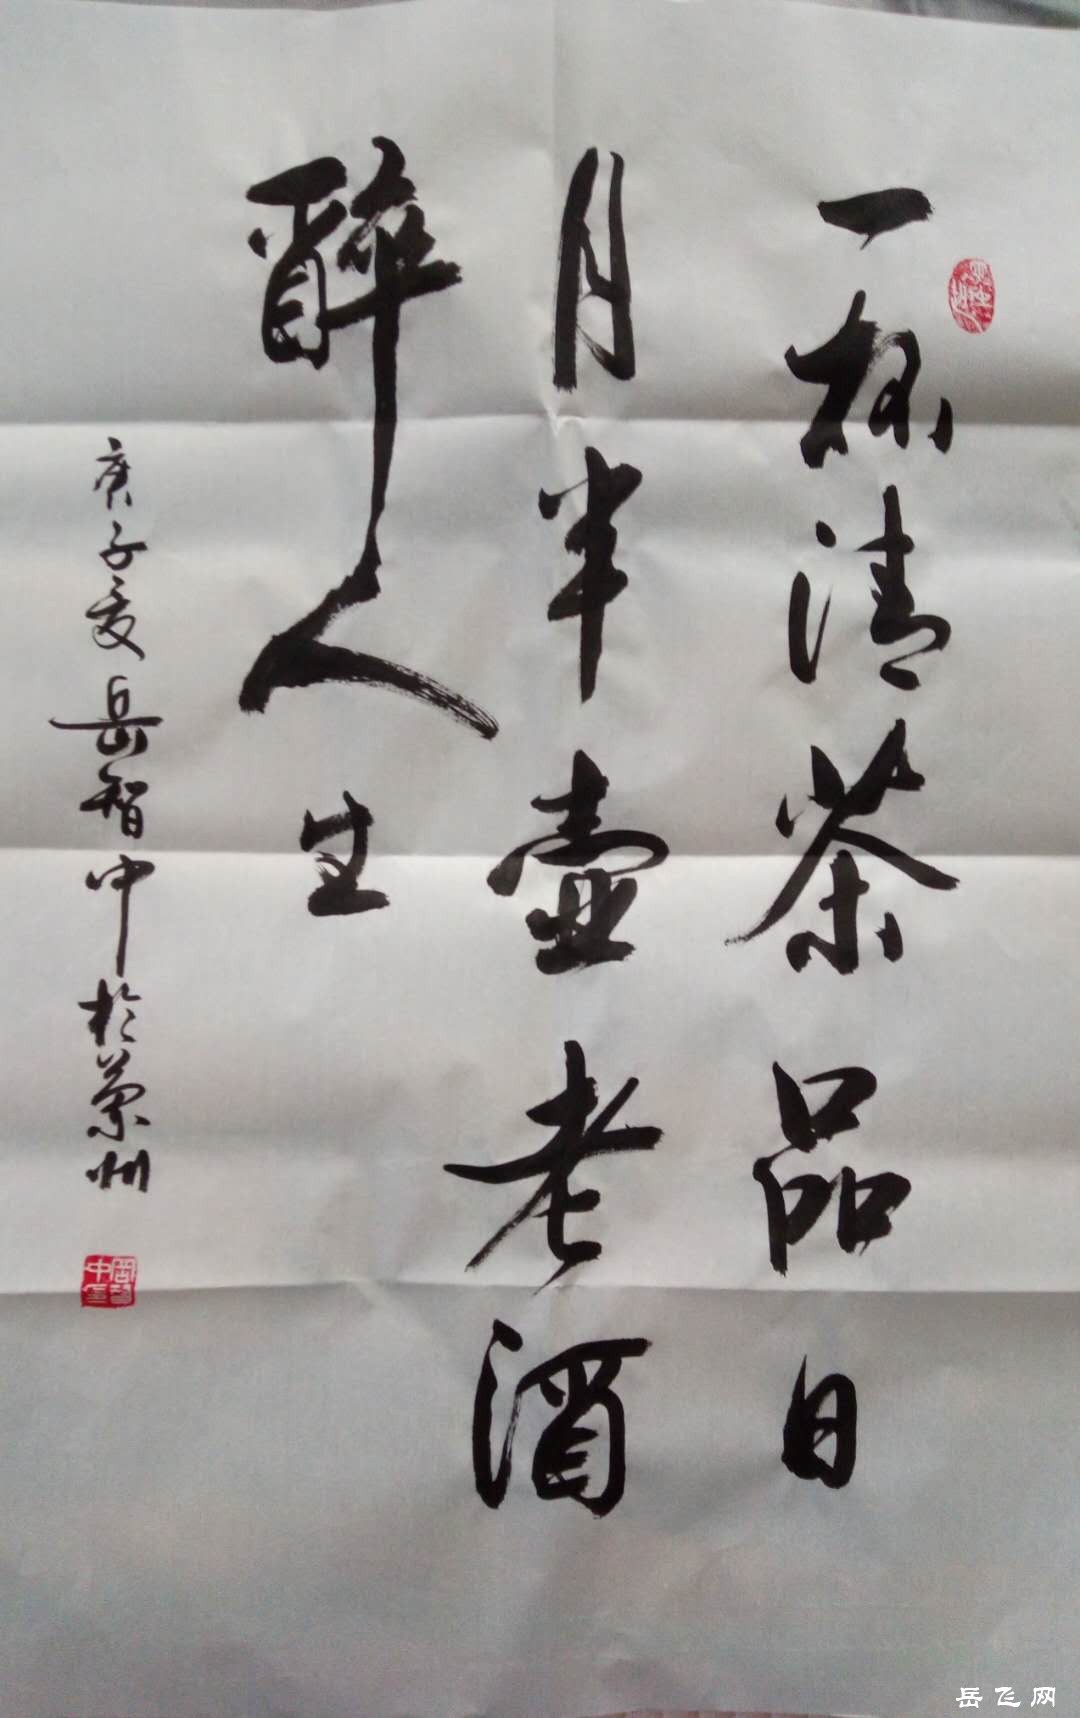 一杯清茶品日
月半壶老酒
醉人生
庚子夏岳智中於兰州
岳飞网